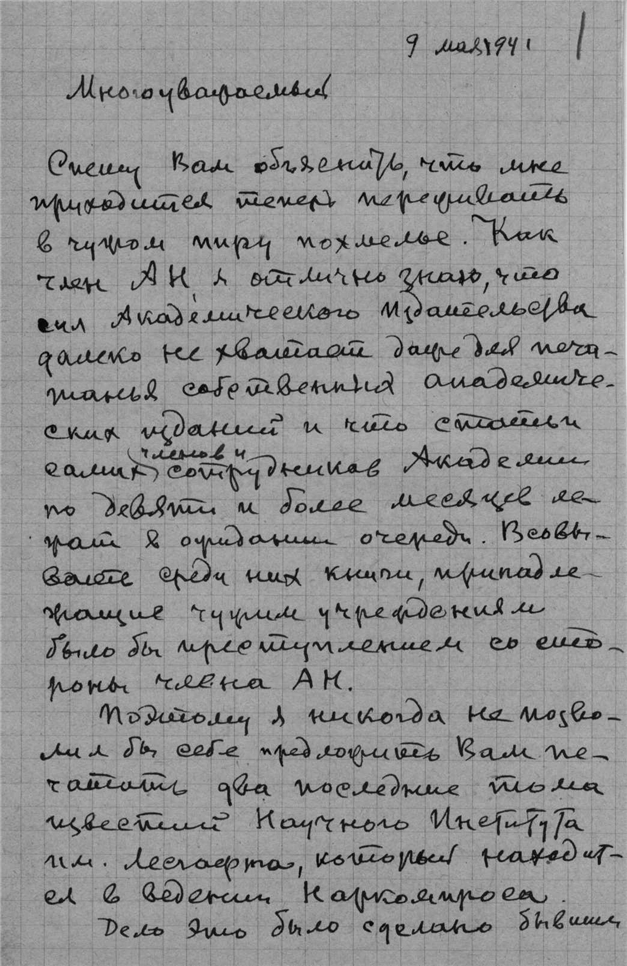 9 мая 1941
1
Многоуважаемый
Спешу Вам объяснить, что мне
приходится теперь переживать
в чужом пиру похмелье. Как
член АН я отлично знаю, что
сил Академического Издательства
далеко не хватает даже для печа-
танья собственных академиче-
ских изданий и что статьи
членов и
самих сотрудников Академии
по девяти и более месяцев ле-
жат в ожидании очереди. Всовы-
вать среди них книги, принадле-
жащие чужим учреждениям
было бы преступлением со сто-
роны члена АН.
Поэтому я никогда не позво-
лил бы себе предложить Вам пе-
чатать два последние тома
известий Научного Института
им. Лесгафта, который находит-
ся в ведении Наркомпроса.
Дело это было сделано бывшим